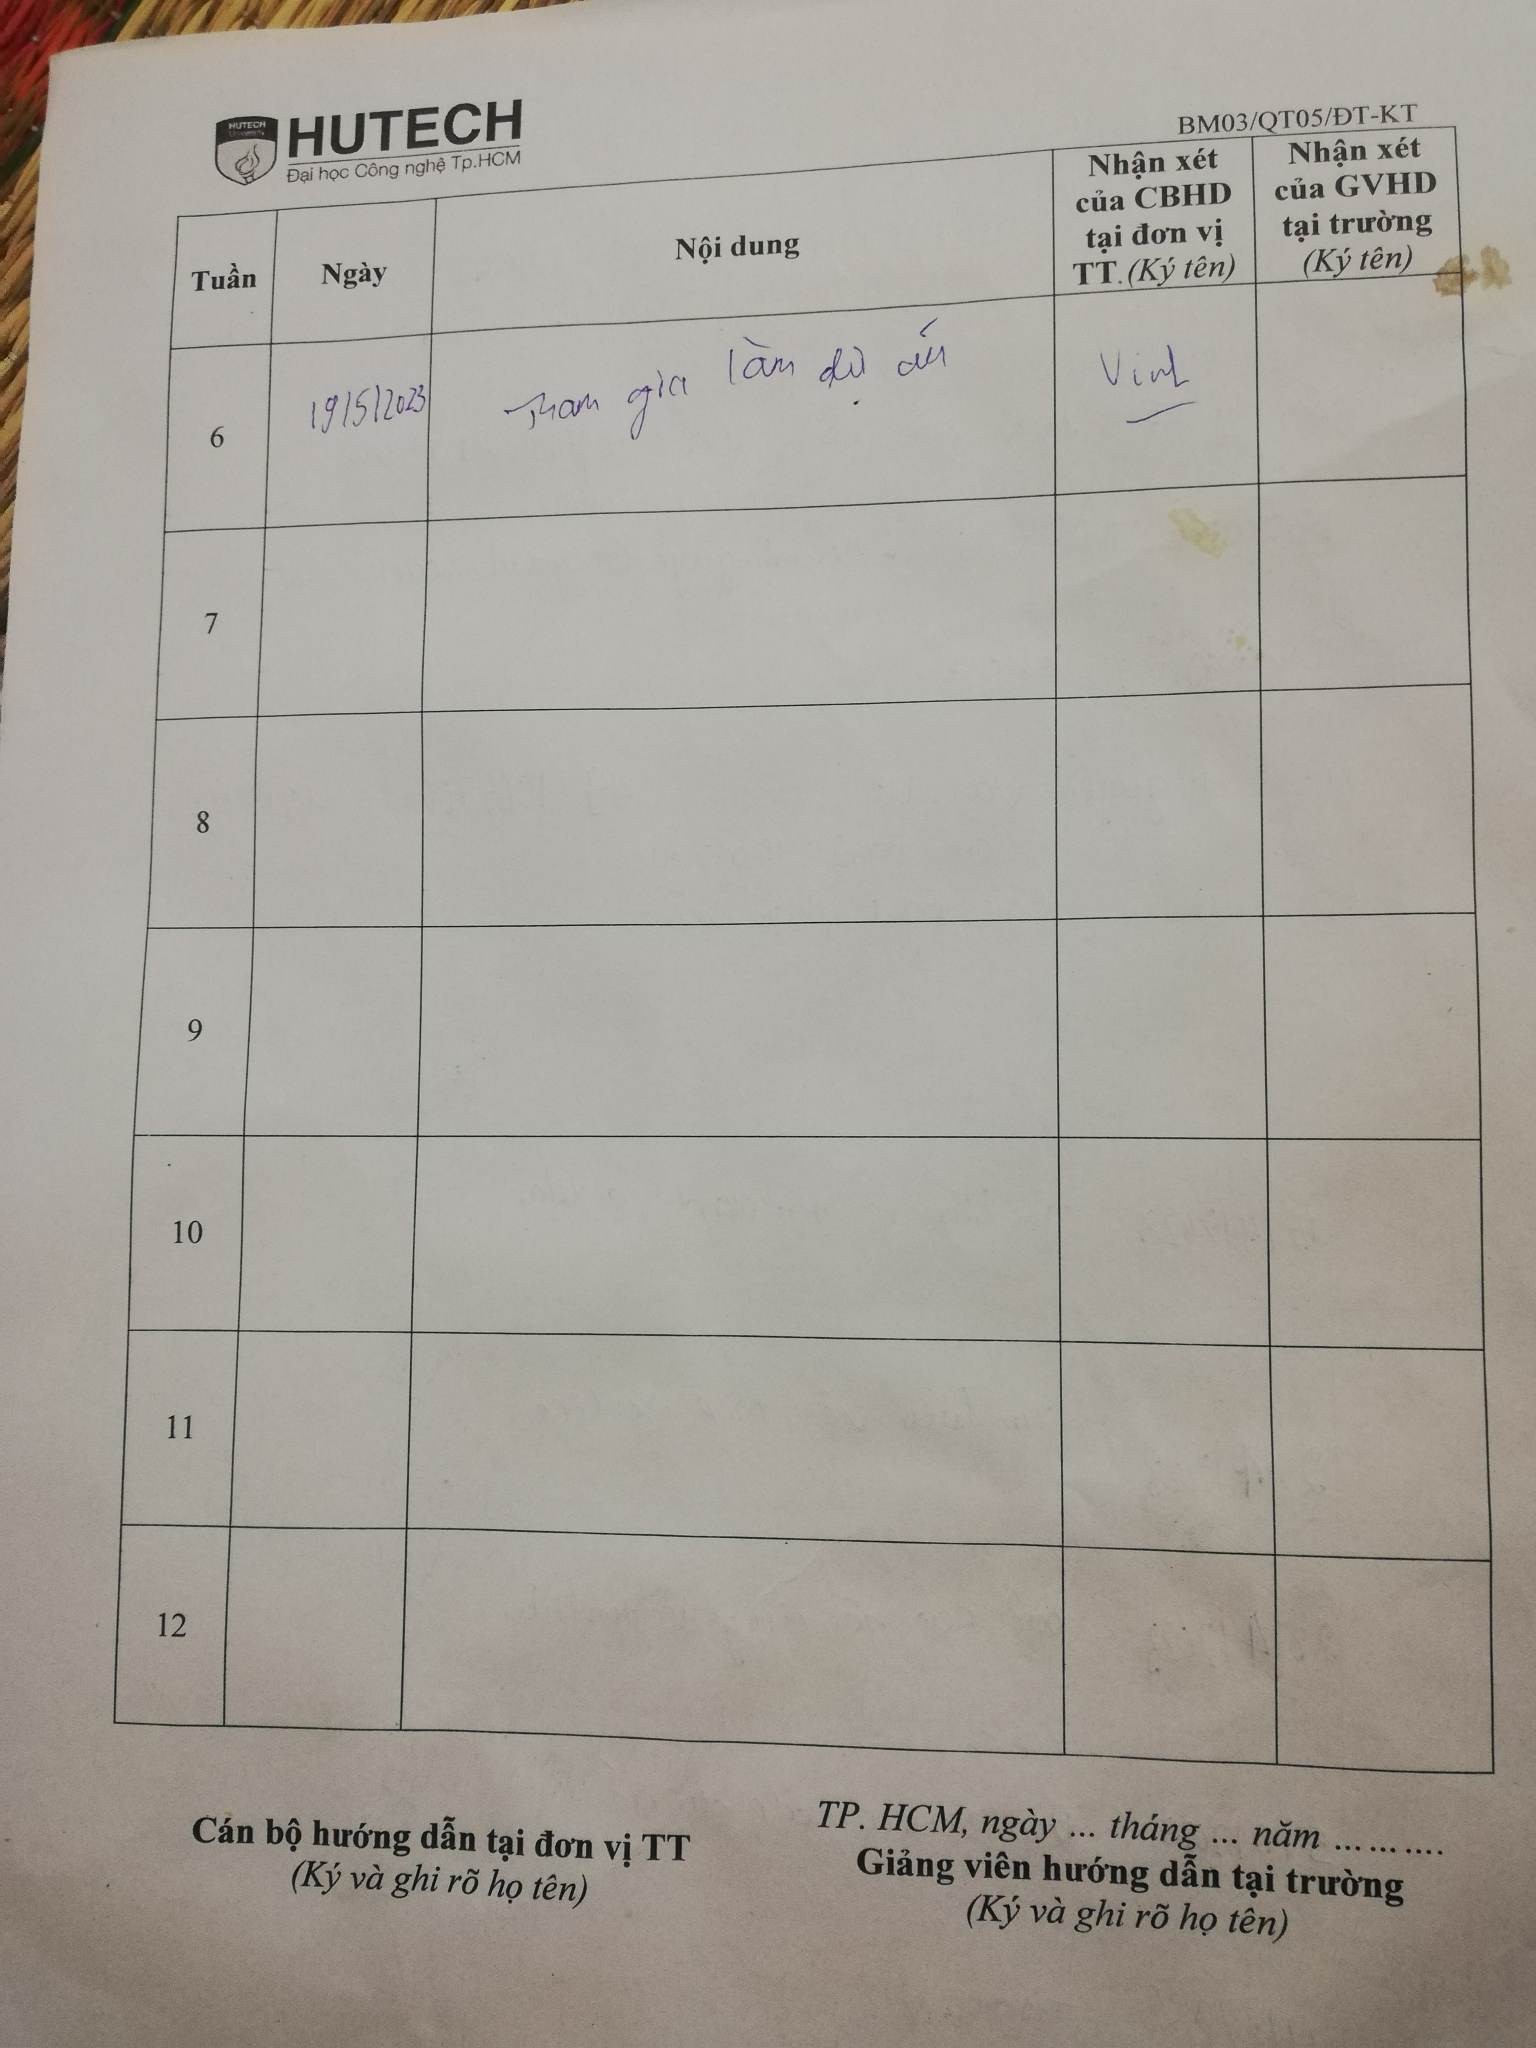 HUTECH
University
HUTECH
Đại học Công nghệ Tp.HCM
BM03/QT05/ĐT-KT
Tuần
Ngày
Nội dung
Nhận xét
của CBHD
tại đơn vị
TT.(Ký tên)
Nhận xét
của GVHD
tại trường
(Ký tên)
6
19/5/2023
Tham gia làm dự án
Vinh
7
8
9
10
11
12
Cán bộ hướng dẫn tại đơn vị TT
(Ký và ghi rõ họ tên)
TP. HCM, ngày ... tháng ... năm ..........
Giảng viên hướng dẫn tại trường
(Ký và ghi rõ họ tên)